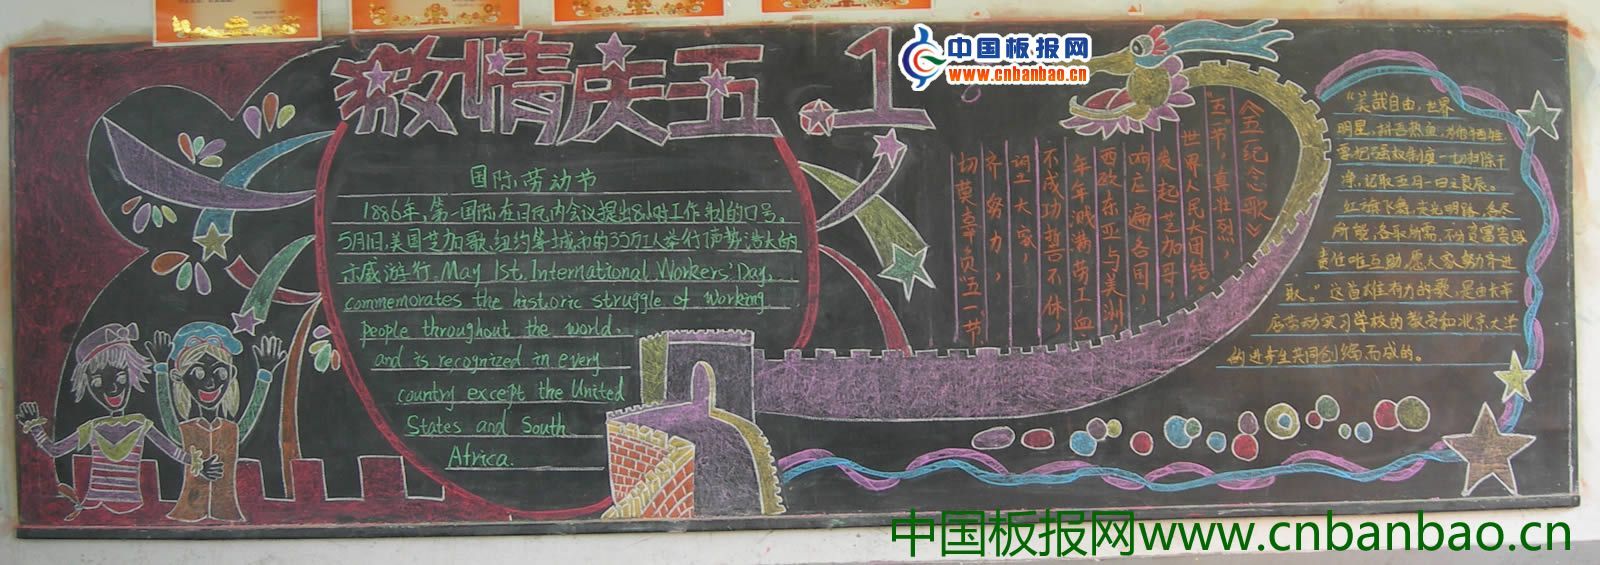 激情庆五.1
中国板报网
www.cnbanbao.cn
国际劳动节
1886年,第一国际在日瓦内会议提出8小时工作制的口号。
5月1日,美国芝加歌、纽约等城市的35万工人举行了声势浩大的
示威游行。May 1st, International Workers' Day,
commemorates the historic struggle of working
people throughout the world,
and is recognized in every
country except the United
States and South
Africa.
《五一纪念歌》
"五一"节,真壮烈,
世界人民大团结。
发起芝加哥,
响应遍各国,
西欧东亚与美洲,
年年溅满劳工血
不成功誓不休,
词工大家,
齐努力,
切莫辜负"五一"节
"美哉自由,世界
明星,拼吾热血,为他牺牲
要把强权制度一切扫除干
净,记取五月一日之良辰。
红旗飞舞,走光明路,各尽
所能,各取所需,不分贫富贵贱
责任唯互助,愿大家努力齐进
取。"这首雄有力的歌,是由长辛
店劳动实习学校的教员和北京大学
的进步生共同创编而成的。
中国板报网www.cnbanbao.cn